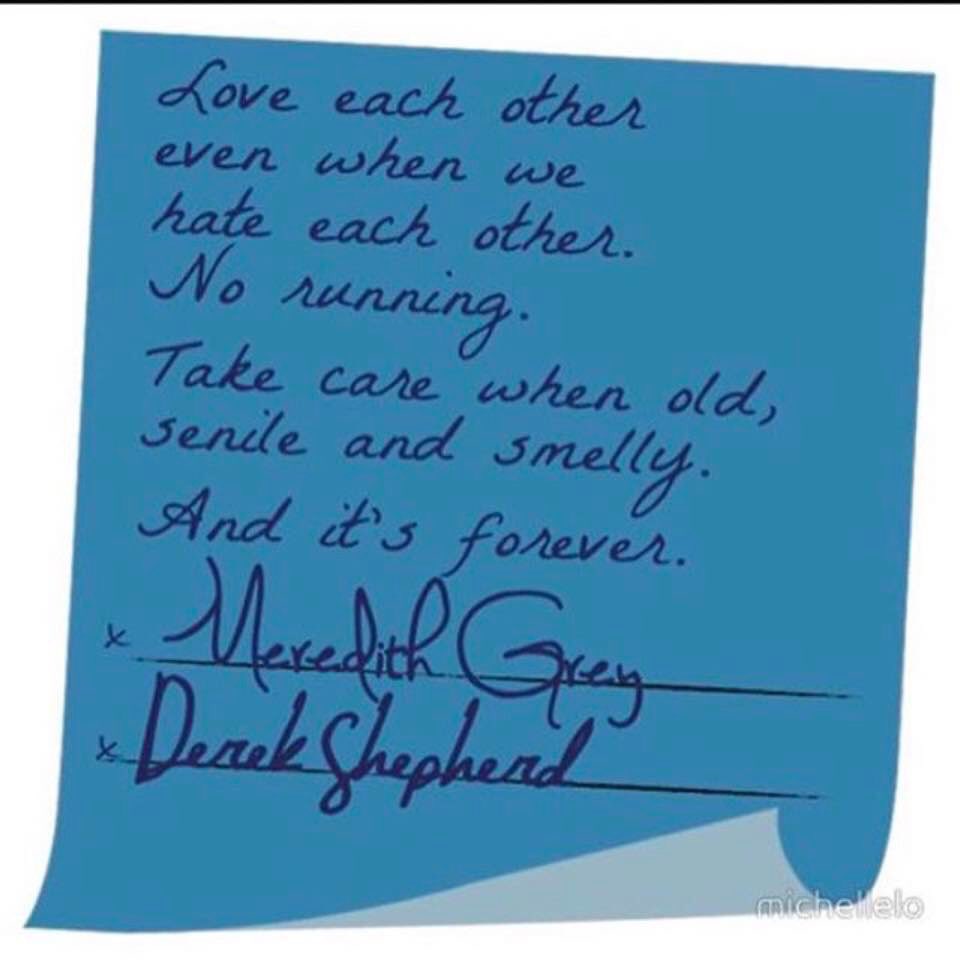 Love each other
even when we
hate each other.
No running.
Take care when old,
senile and smelly.
And it's forever.
x Meredith Grey
x Derek Shepherd
michellelo